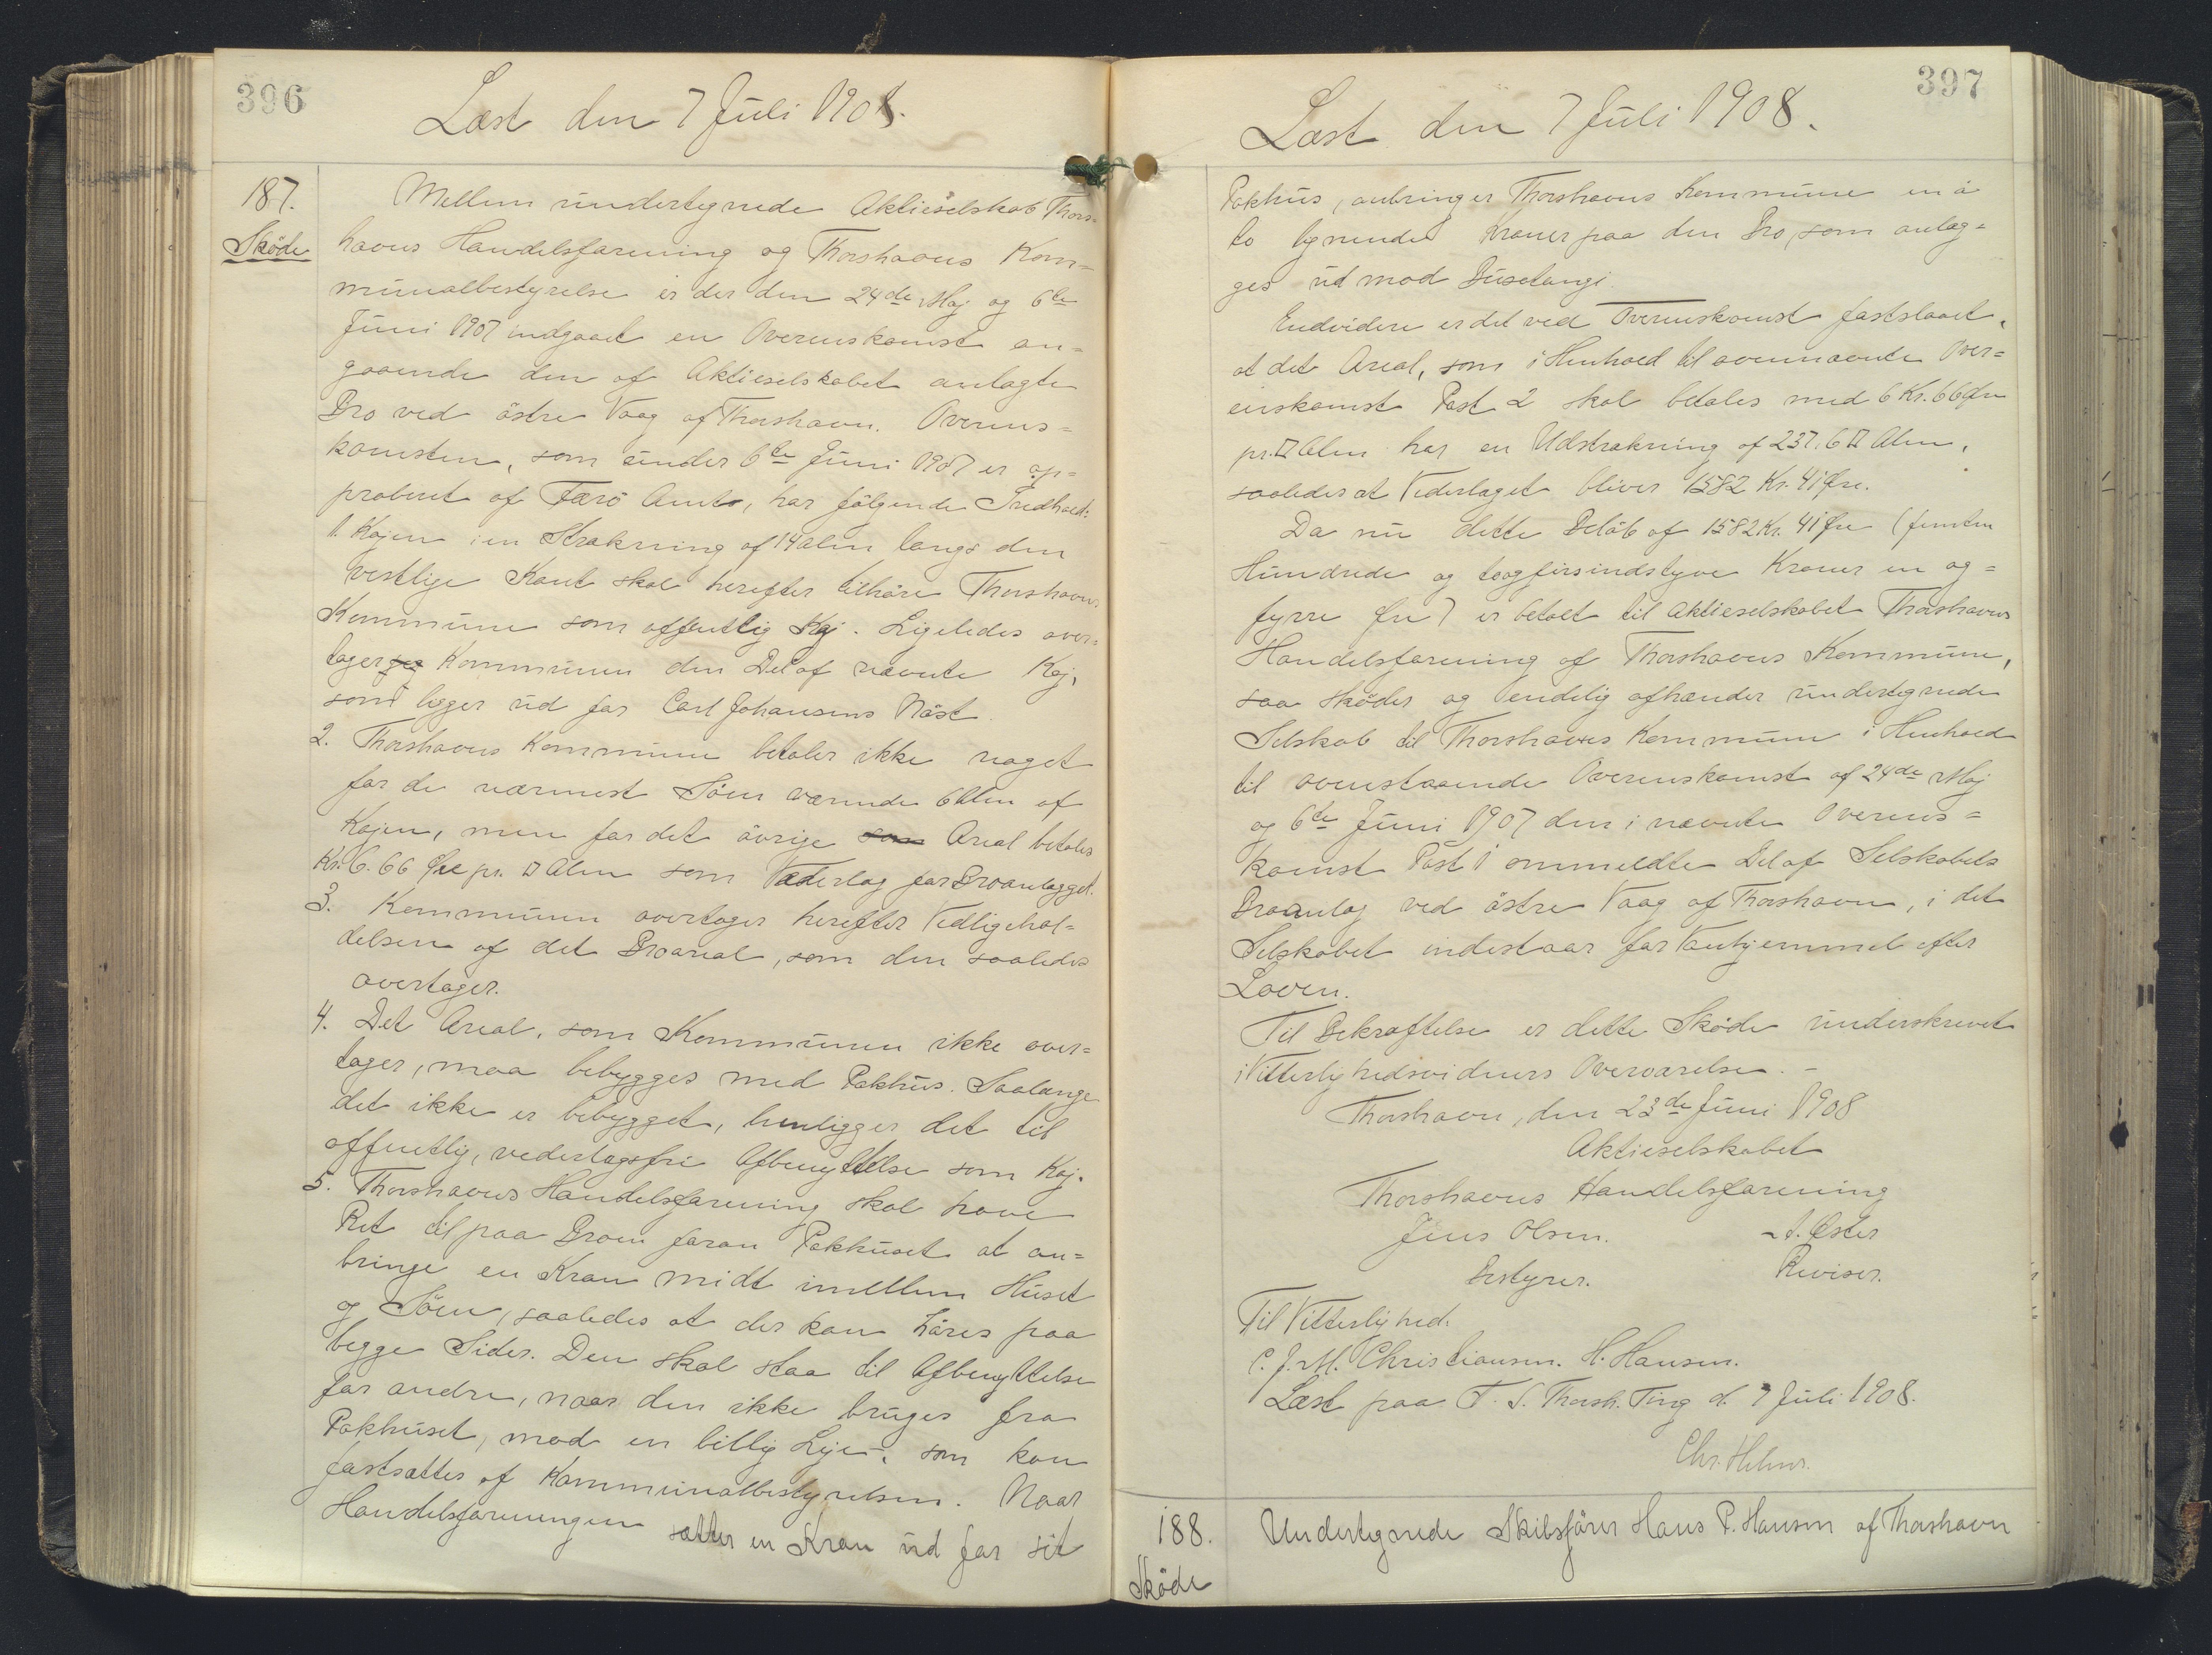 396
Læst den 7 Juli 1908.
187.
Sköde
Mellem undertegnede Aktieselskab Thors=
havns Handelsforening og Thorshavns Kom=
munalbestyrelse er der den 24de Maj og 6te
Juni 1907 indgaaet en Overenskomst an=
gaaende den af Aktieselskabet anlagte
Bro ved östre Vaag af Thorshavn. Overens=
komsten, som under 6te Juni 1907 er ap=
proberet af Færö Amt, har fölgende Indhold:
1. Kajen i en Strækning af 14 alen langs den
vestlige Kant skal herefter tilhöre Thorshavns
Kommune som offentlig Kaj. Ligeledes over=
tager Kommunen den Del af nævnte Kaj,
som ligger ud for Carl Johansens Nöst.
2. Thorshavns Kommune betaler ikke noget
for de nærmest Söen værende 6 Alen af
Kajen, men for det övrige som Areal betales
Kr. 6.66 Øre pr. □ Alen som Vederlag for Broanlægget.
3. Kommunen overtager herefter Vedligehol=
delsen af det Broareal, som den saaledes
overtager.
4. Det Areal, som Kommunen ikke over=
tager, maa bebygges med Pakhus. Saalænge
det ikke er bebygget, henligger det til
offentlig, vederlagsfri Afbenyttelse som Kaj.
5. Thorshavns Handelsforening skal have
Ret til paa Broen foran Pakhuset at an=
bringe en Kran midt imellem Huset
og Söen, saaledes at der kan köres paa
begge Sider. Den skal staa til Afbenyttelse
for andre, naar den ikke bruges fra
Pakhuset, mod en billig Leje, som kan
fastsættes af Kommunalbestyrelsen. Naar
Handelsforeningen sætter en Kran ud for sit
397
Læst den 7 Juli 1908.
Pakhus, anbringer Thorshavns Kommune en à
to lignende Kraner paa den Bro, som anlæg=
ges ud mod
Endvidere er det ved Overenskomst fastslaaet,
at det Areal, som i Henhold til ovennævnte Over=
enskomst Post 2 skal betales med 6 Kr. 66 Øre
pr. □ Alen har en Udstrækning af 237.6 □ Alen,
saaledes at Vederlaget bliver 1582 Kr. 41 Øre.
Da nu dette Belöb af 1582 Kr. 41 Øre (femten
Hundrede og toogfirsindstyve Kroner en og=
fyrre Øre) er betalt til Aktieselskabet Thorshavns
Handelsforening af Thorshavns Kommune,
saa sköder og endelig afhænder undertegnede
Selskab til Thorshavns Kommune i Henhold
til ovenstaaende Overenskomst af 24de Maj
og 6te Juni 1907 den i nævnte Overens=
komst Post 1 ommeldte Del af Selskabets
Broanlæg ved östre Vaag af Thorshavn, i det
Selskabet indestaar for Vanhjemmel efter
Loven.
Til Bekræftelse er dette Sköde underskrevet
i Vitterlighedsvidners Overværelse. -
Thorshavn, den 23de Juni 1908
Aktieselskabet
Thorshavns Handelsforening
Jens Olsen. A. Øster
Bestyrer. Revisor.
Til Vitterlighed:
C. J. M. Christiansen. H. Hansen.
Læst paa F. S. Thorsh. Ting d. 7 Juli 1908.
188.
Sköde
Undertegnede Skibsförer Hans P. Hansen af Thorshavn